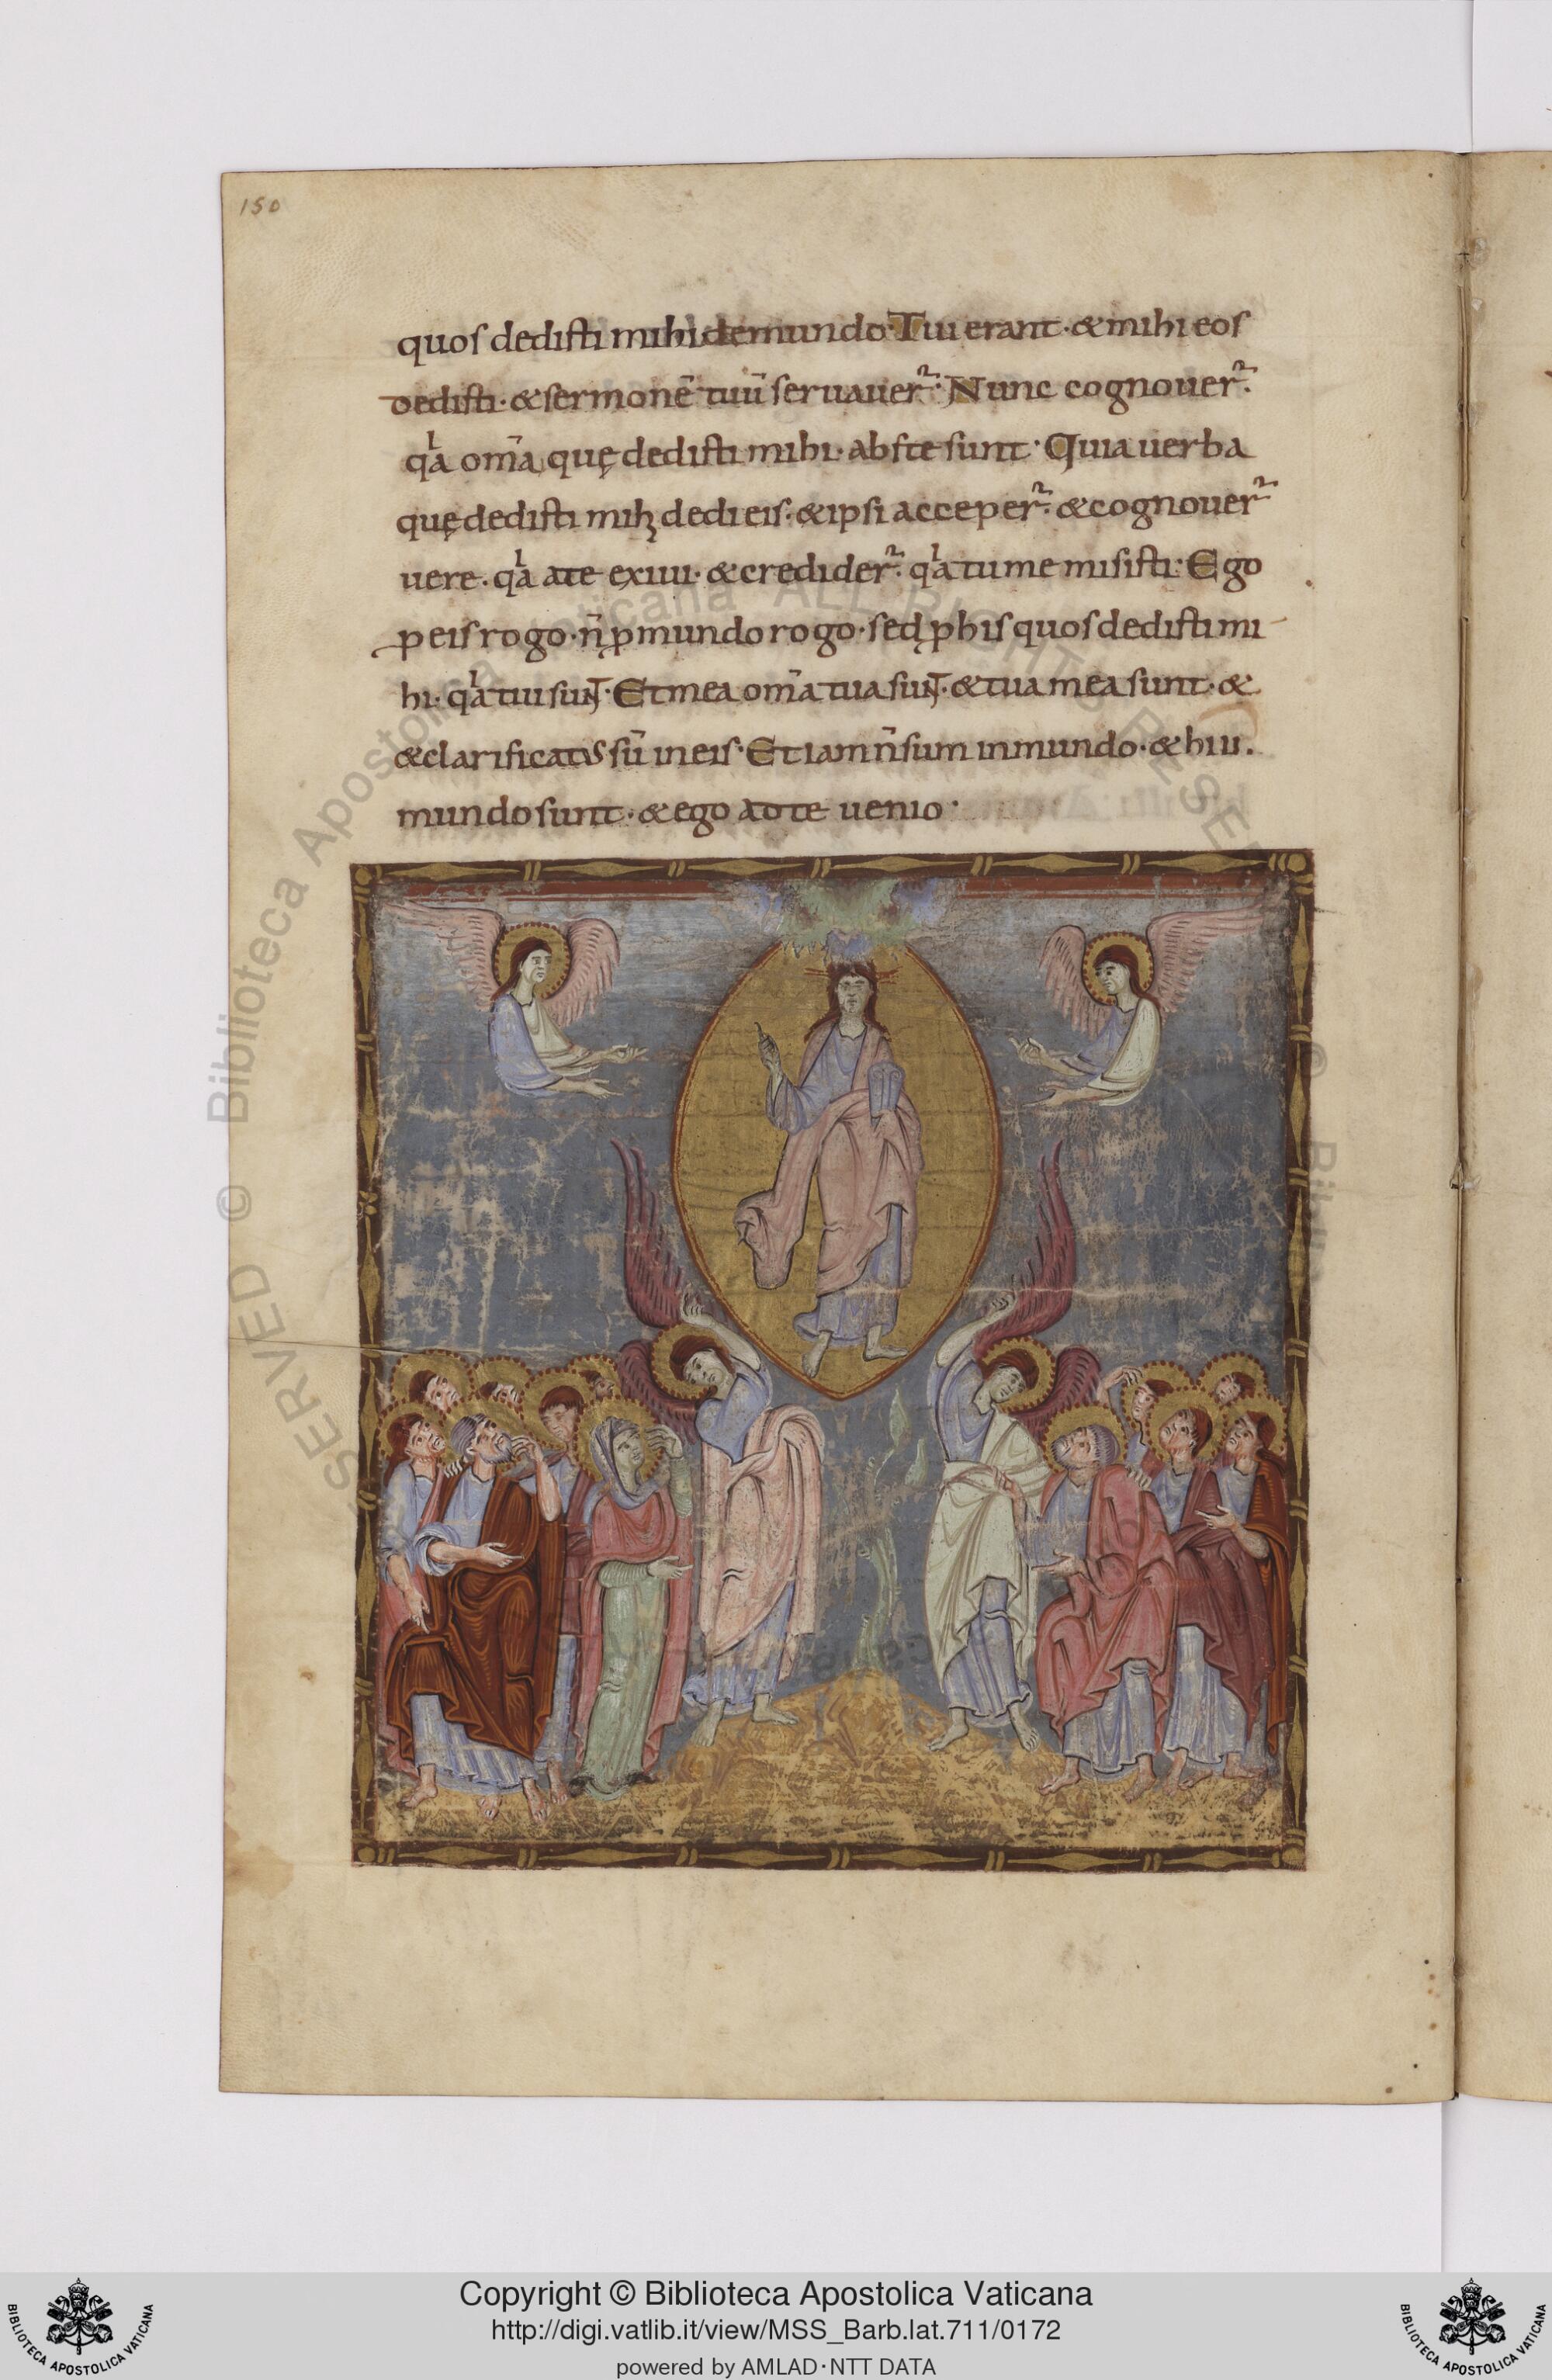 150
quos dedisti mihi de mundo· Tui erant· & mihi eos
dedisti· & sermonē tuū seruauer̄· Nunc cognouer̄·
qͥa om̄a quę dedisti mihi· abs te sunt· Quia uerba
quę dedisti mihi dedi eis· & ipsi acceper̄· & cognouer̄
uere· qͥa a te exiui· & credider̄· qͥa tu me misisti· Ego
p eis rogo· n̄ ꝓ mundo rogo· sed ꝓ his quos dedisti mi-
hi· qͥa tui sunt· Et mea om̄a tua sunt· & tua mea sunt· &
& clarificatus sū in eis· Et iam n̄ sum in mundo· & hi ii.
mundo sunt· & ego ad te uenio·
SERVED © Biblioteca Apostolica Vaticana ALL RIGHTS RESE
Copyright © Biblioteca Apostolica Vaticana
http://digi.vatlib.it/view/MSS_Barb.lat.711/0172
powered by AMLAD·NTT DATA
BIBLIOTECA APOSTOLICA VATICANA
BIBLIOTECA APOSTOLICA VATICANA